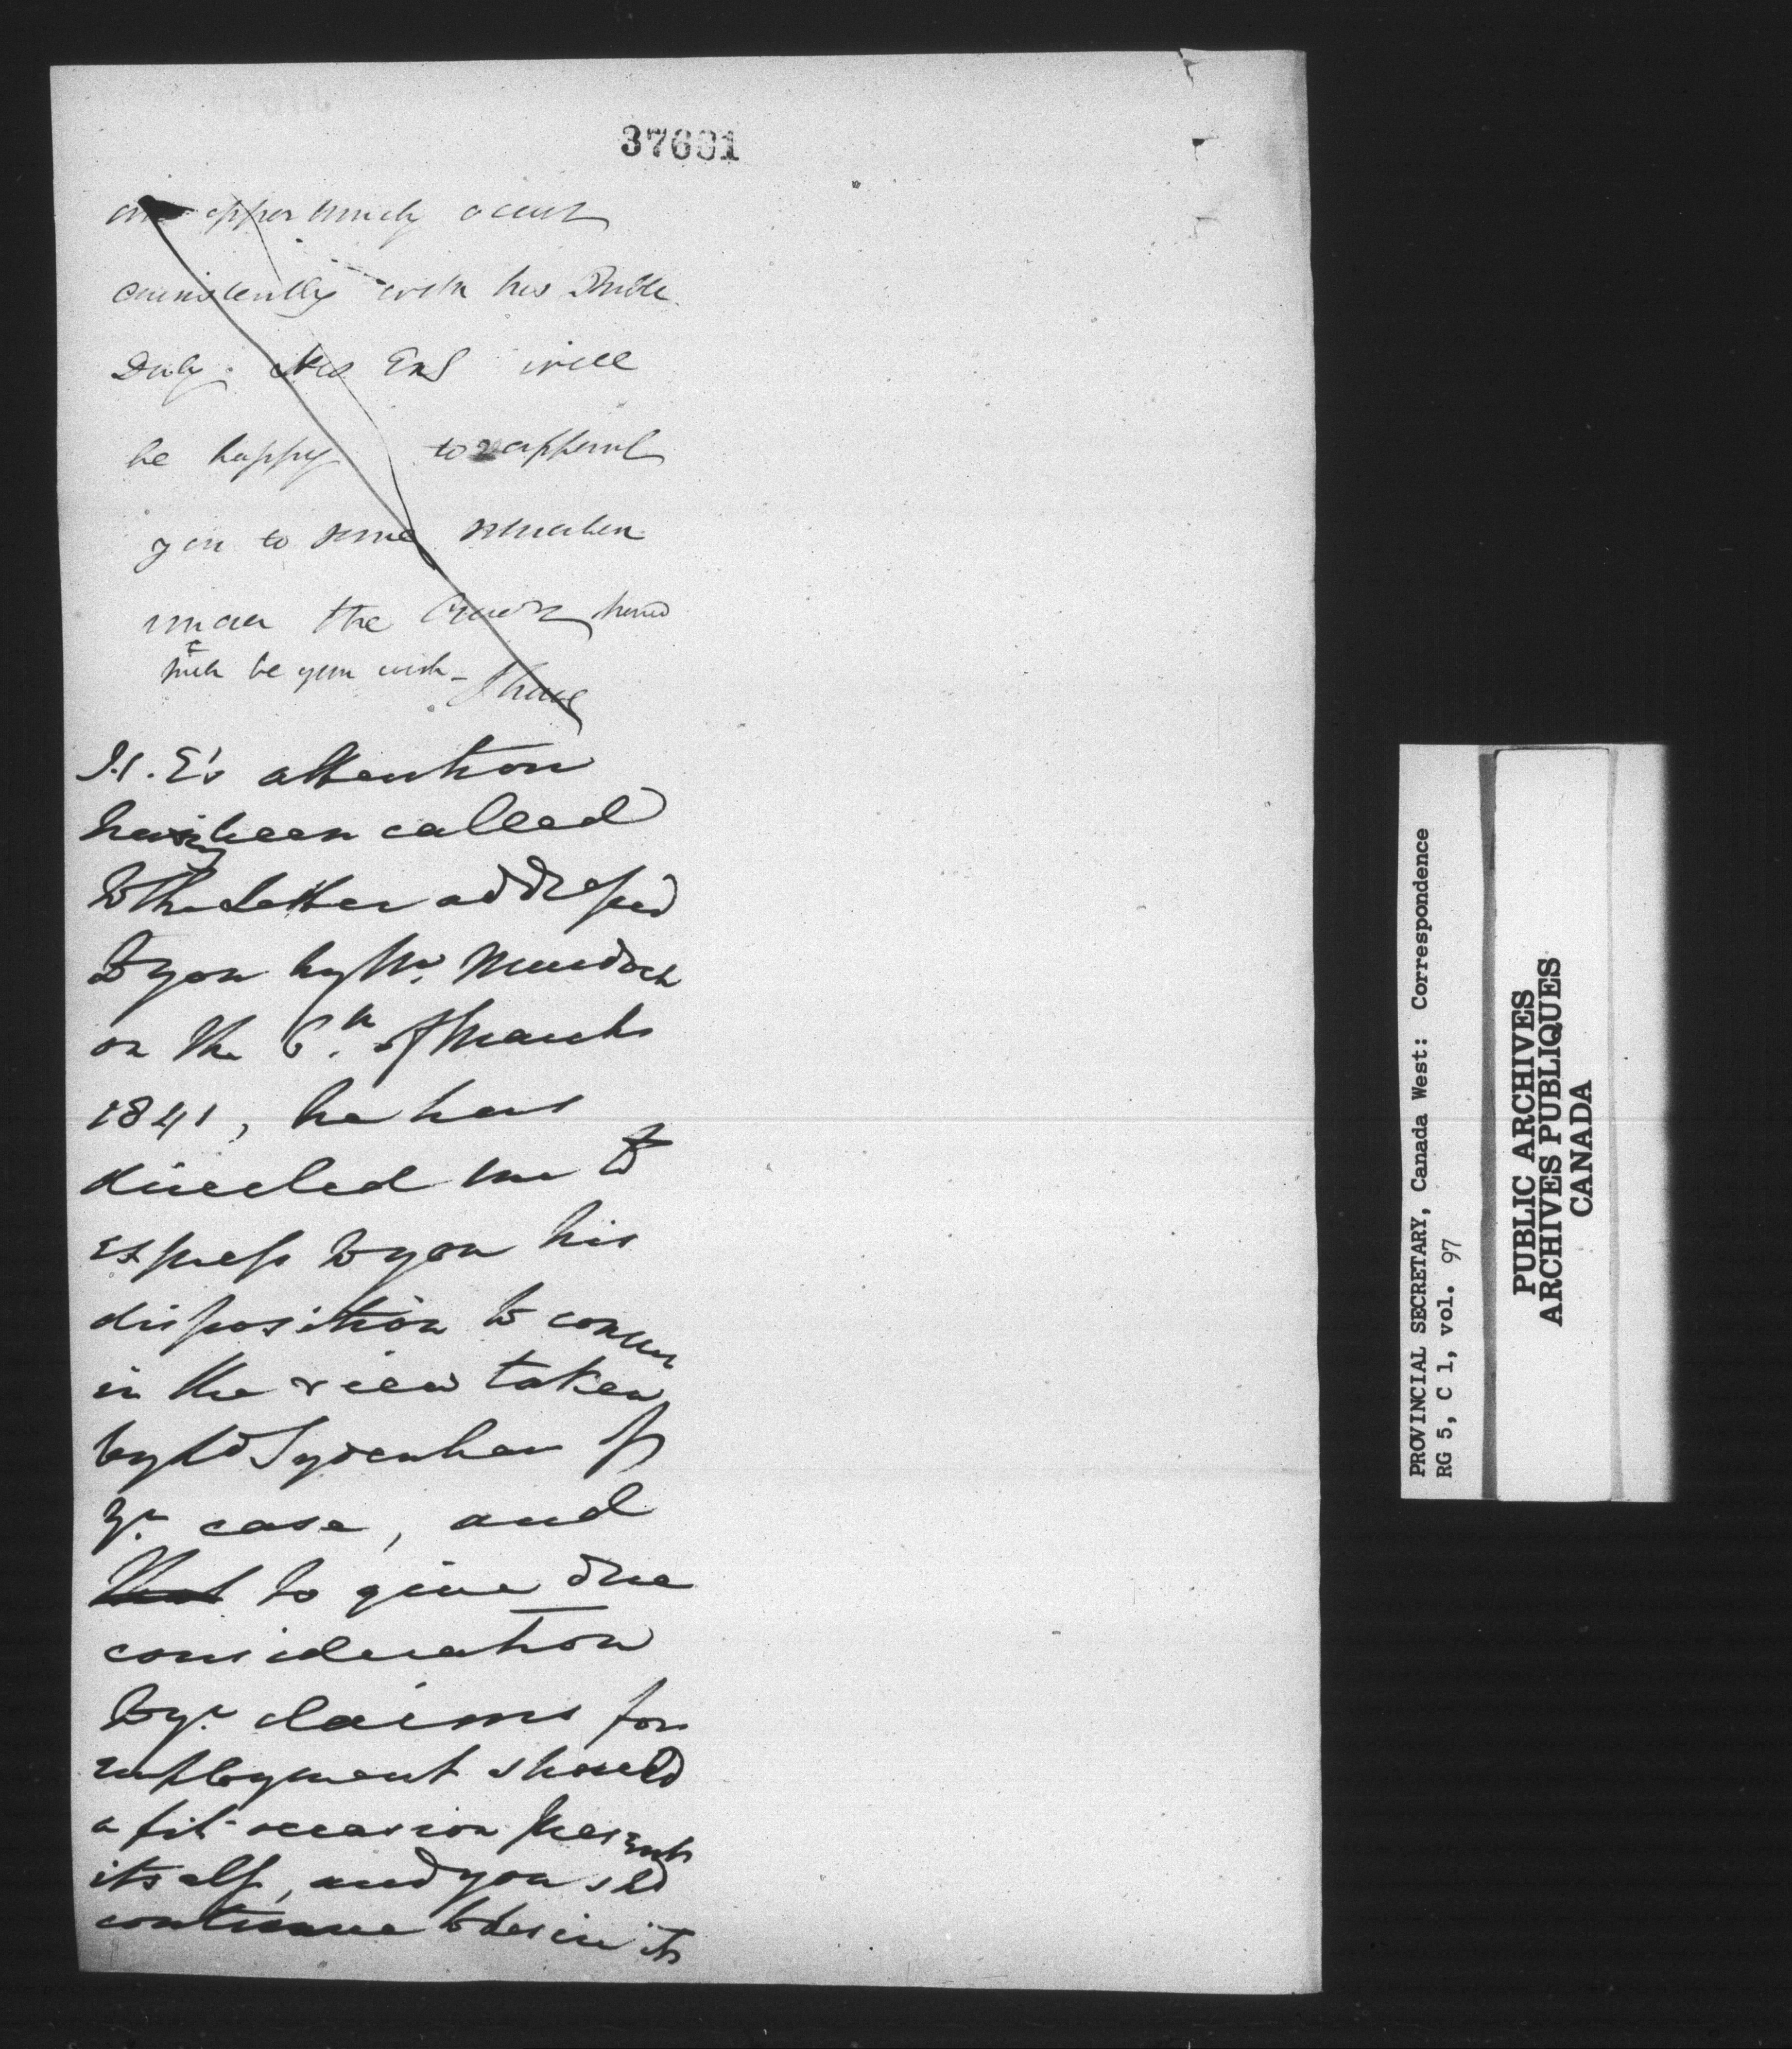 37631
an opportunity occur
consistently with his Public
Duty. His Exl will
be happy to appoint
you to some situation
under the Crown
such be your wish - I have
H. E's attention
having been called
to the Letter addressed
to you by Mr. Murdoch
on the 6th. of March
1841, he has
directed me to
express to you his
disposition to concur
in the view taken
by Ld Sydenham of
yr. case, and
that to give due
consideration
to yr. claims for
employment should
a fit occasion present
itself, and you shd
continue to desire it
PROVINCIAL SECRETARY, Canada West: Correspondence
RG 5, C 1, vol. 97
PUBLIC ARCHIVES
ARCHIVES PUBLIQUES
CANADA